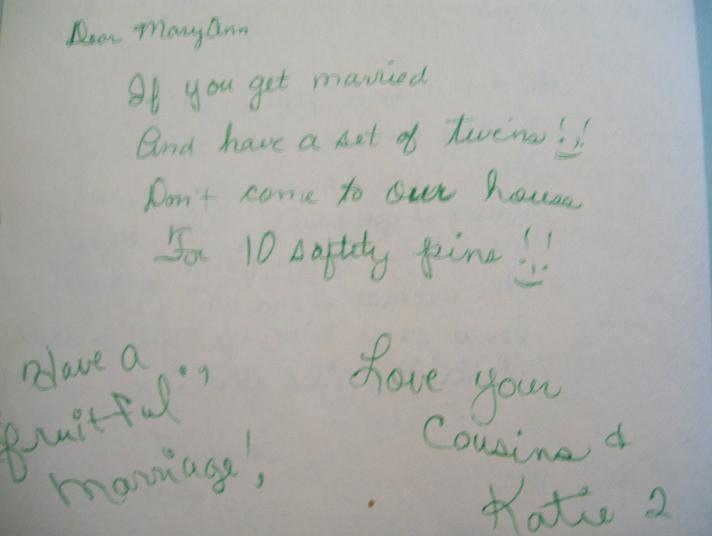 Dear MaryAnn
If you get married
And have a set of twins!!
Don't come to our house
For 10 saftity pins!!
Have a
fruitful
marriage!,
Love your
Cousins &
Katie 2